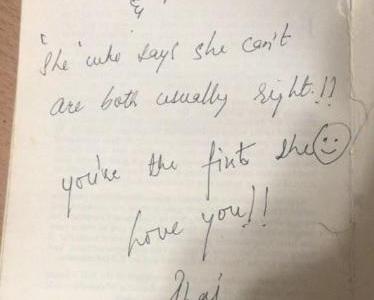 &
"She" who says she can't
are both usually right!!
you're the first she 🙂
Love you!!
Bhai